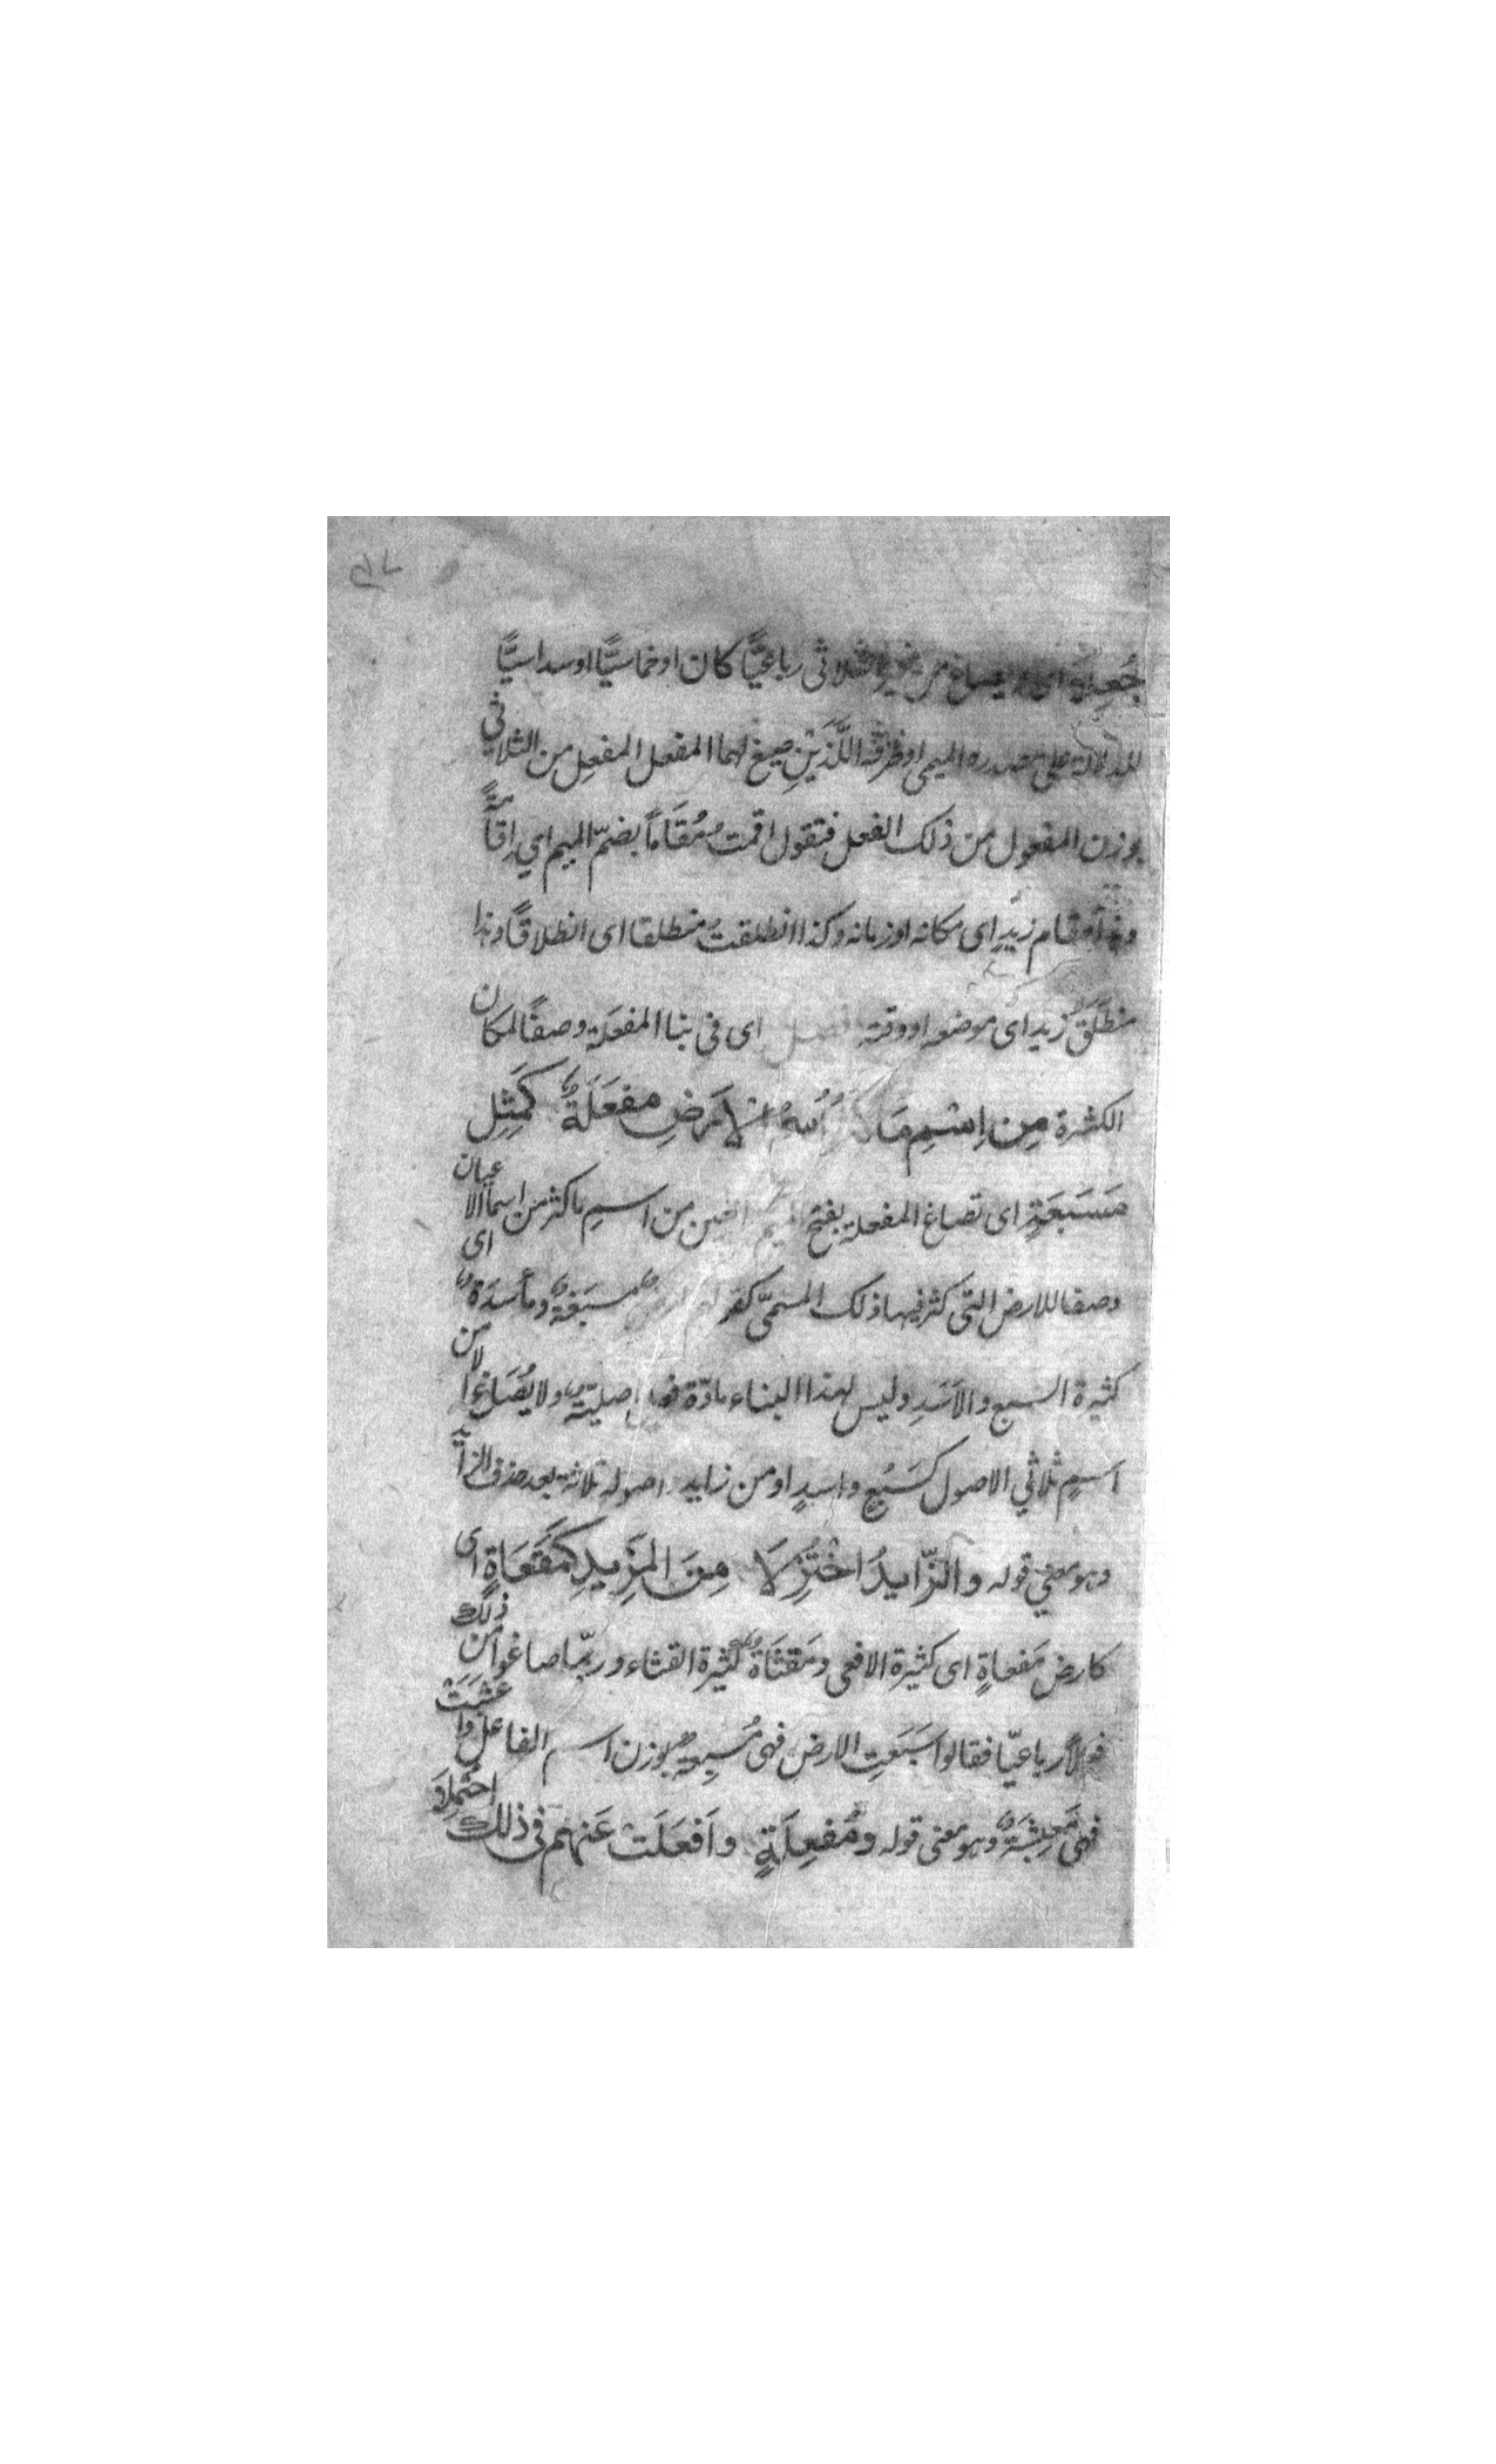 جُعِلَا اى يصاغ من غير الثلاثى رباعيًّا كان او خماسيًّا او سداسيًّا
للدلالة على مصدره الميمى او ظرفه اللَّذَيْنِ صيغ لهما المفعل المفعِل من الثلاثي
بوزن المفعول من ذلك الفعل فتقول اقمتُ مُقَاماً بضمّ الميم اي اِقامةً
وهذا مقام زيدٍ اى مكانه او زمانه وكذا انطلقتُ منطلقا اى انطلاقًا وهذا
منطلَق زيد اى موضعه او وقته فصل اى فى بنا المفعَلة وصفًا لمكان
الكثرة مِن اِسْمِ مَا كثر اسمُ الاَرَضِ مفعَلَةٌ كَمِثِل
مَسَبَعَةٍ اى تصاغ المفعلة بفتح الميم والعين من اسمِ ما كثر من اسما الاعيان
وصفا للارض التى كثر فيها ذلك المسمّى كقولهم ارض مسبَعَةٌ ومأسدَةٌ اى
كثيرة السبع والاَسَدِ وليس لهذا البناء مادّة فعل اصليّةٌ ولا يُصَاغ الا من
اسمٍ ثلاثي الاصول كَسَبُعٍ واسدٍ او من زايد اصوله ثلاثة بعد حذف الزائد
وهو معني قوله والزّايدُ اخْتُزِلَا مِنَ المَزِيدِ كمَفَعَاةٍ اى
كارض مَفعاةٍ اى كثيرة الافعى ومَقثَاةٌ كثيرة القثاء وربّما صاغوا من ذلك
فعلاً رباعيّا فقالوا اَسَبَعَتِ الارض فهى مُسبِعةٌ بوزن اسم الفاعل واعشبَتْ
فهى مَعشِبَةٌ وهو معنى قوله ومُفعِلَةٍ واَفعَلَتْ عَنهم فى ذلك احْتُمِلَا